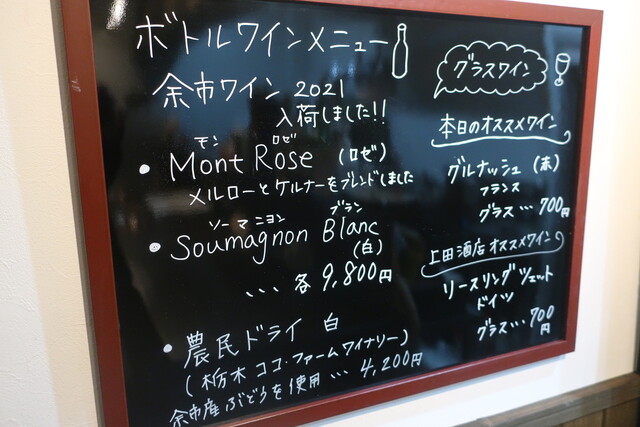 ボトルワインメニュー
余市ワイン 2021
入荷しました!!
モン ロゼ
• Mont Rose (ロゼ)
メルローとケルナーをブレンドしました
ソーマニヨン ブラン
• Soumagnon Blanc
(白)
... 各 9,800円
• 農民ドライ 白
(栃木 ココ・ファームワイナリー)
余市産ぶどうを使用 ... 4,200円
グラスワイン
本日のオススメワイン
グルナッシュ (赤)
フランス
グラス … 700円
上田酒店オススメワイン
リースリングツェット
ドイツ
グラス … 700
円